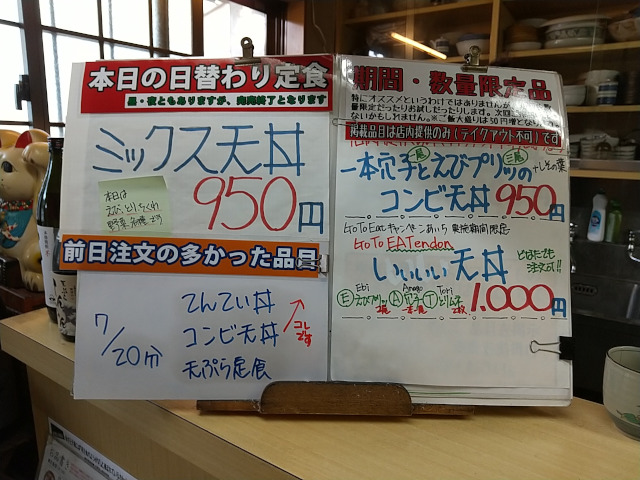 本日の日替わり定食
昼・夜ともありますが、完売終了となります
ミックス天丼
本日は
えび、とり、ちくわ
野菜
950円
前日注文の多かった品
7/20分
てんてい丼
コンビ天丼
天ぷら定食
コレです
期間・数量限定品
特にオススメというわけではありませんが、
数量限定だったりお試しだったりします。次回
ないかもしれません。※ご飯大盛りは50円増となり
掲載品目は店内提供のみ(テイクアウト不可)です
一本穴子とえびプリッツの
+しその葉
コンビ天丼 950円
Go To Eat キャンペーンあいち 実施期間限定
Go To EATendon
いいいい天丼
1.000円
Ebi Anago Tori
Ⓔえびプリッツ Ⓐ穴子 Ⓣとりムネ
2尾 一本 2枚